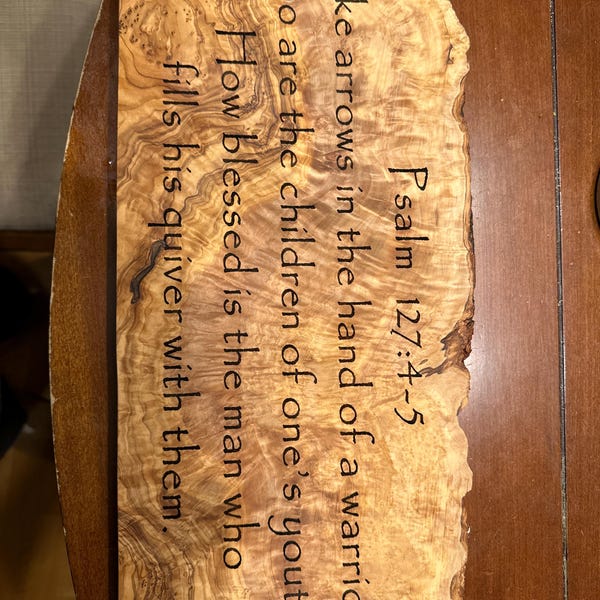 Psalm 127:4-5
ke arrows in the hand of a warrio
o are the children of one's yout
How blessed is the man who
fills his quiver with them.